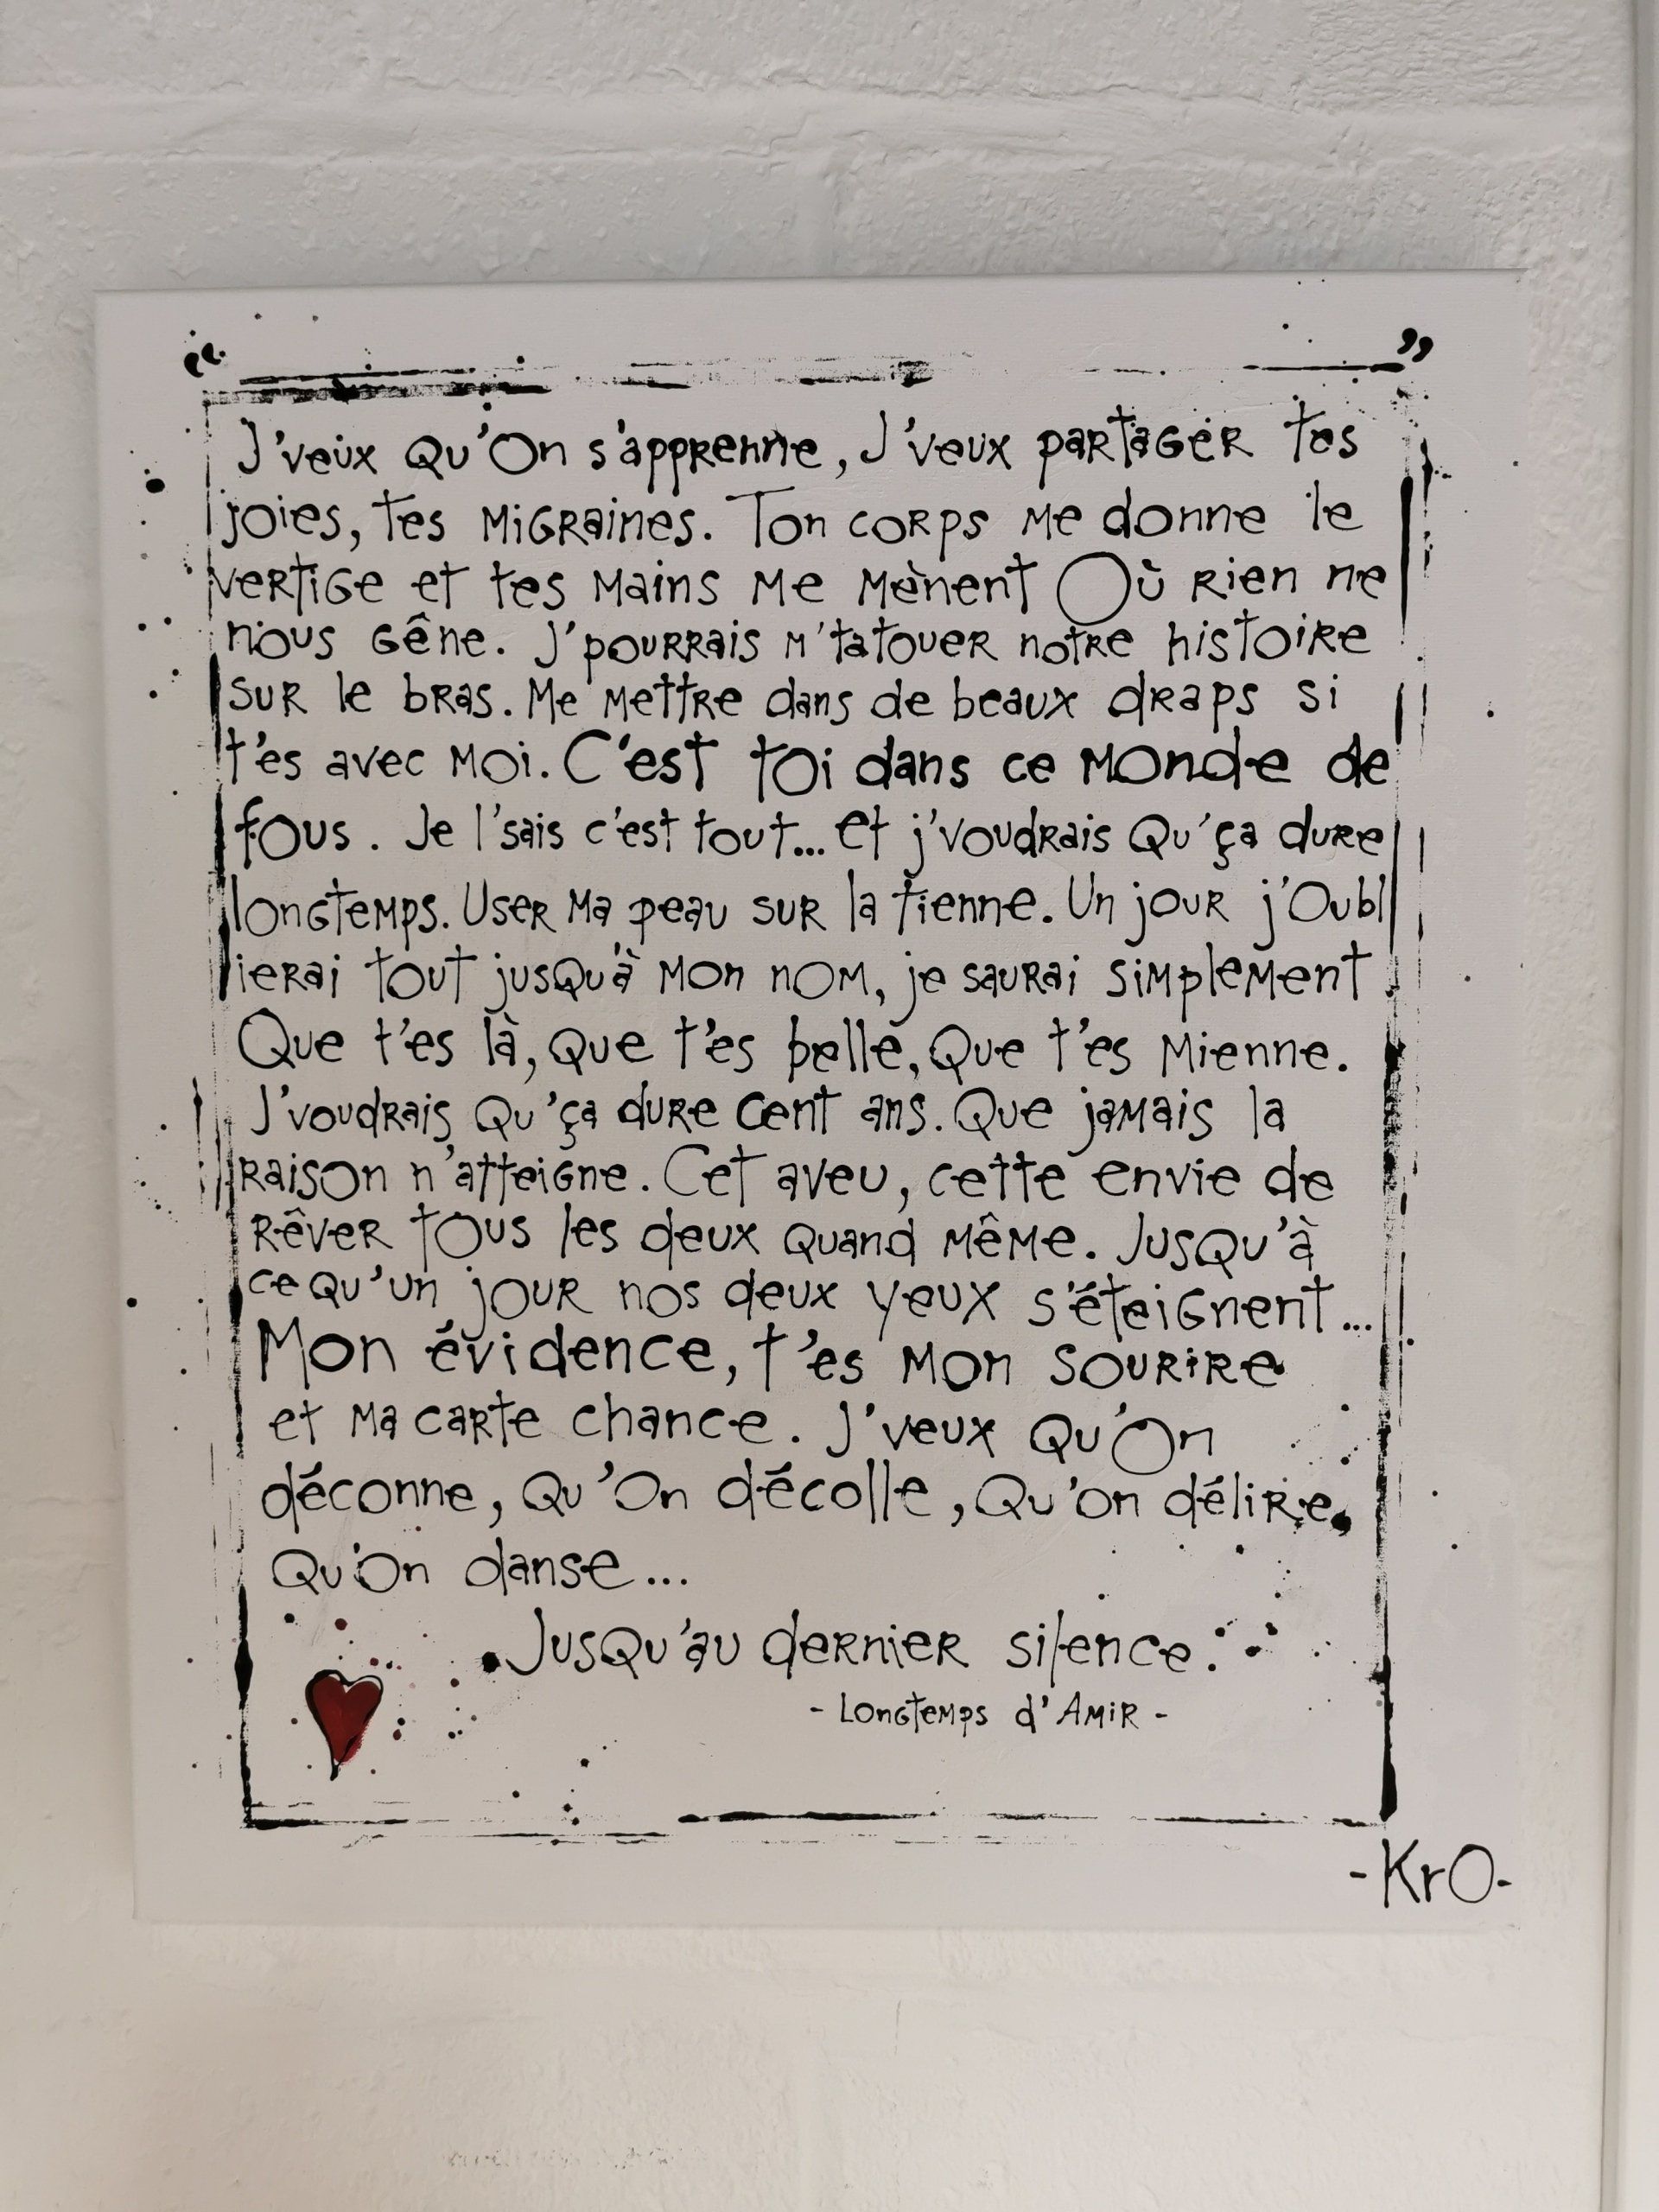 “ ”
J'veux Qu'On s'apprenne, J'veux partager tes
joies, tes migraines. Ton corps me donne le
vertige et tes mains me mènent Où rien ne
nous gêne. J'pourrais m'tatouer notre histoire
sur le bras. Me mettre dans de beaux draps si
t'es avec moi. C'est toi dans ce monde de
fous. Je l'sais c'est tout... et j'voudrais Qu'ça dure
longtemps. User ma peau sur la tienne. Un jour j'Oubl
ierai tout jusqu'à mon nom, je saurai simplement
Que t'es là, Que t'es belle, Que t'es mienne.
J'voudrais Qu'ça dure cent ans. Que jamais la
raison n'atteigne. Cet aveu, cette envie de
rêver tous les deux quand même. Jusqu'à
ce qu'un jour nos deux yeux s'éteignent...
Mon évidence, t'es mon sourire
et ma carte chance. J'veux Qu'On
déconne, Qu'On décolle, Qu'on délire,
Qu'On danse...
Jusqu'au dernier silence.
- Longtemps d'Amir -
-KrO-